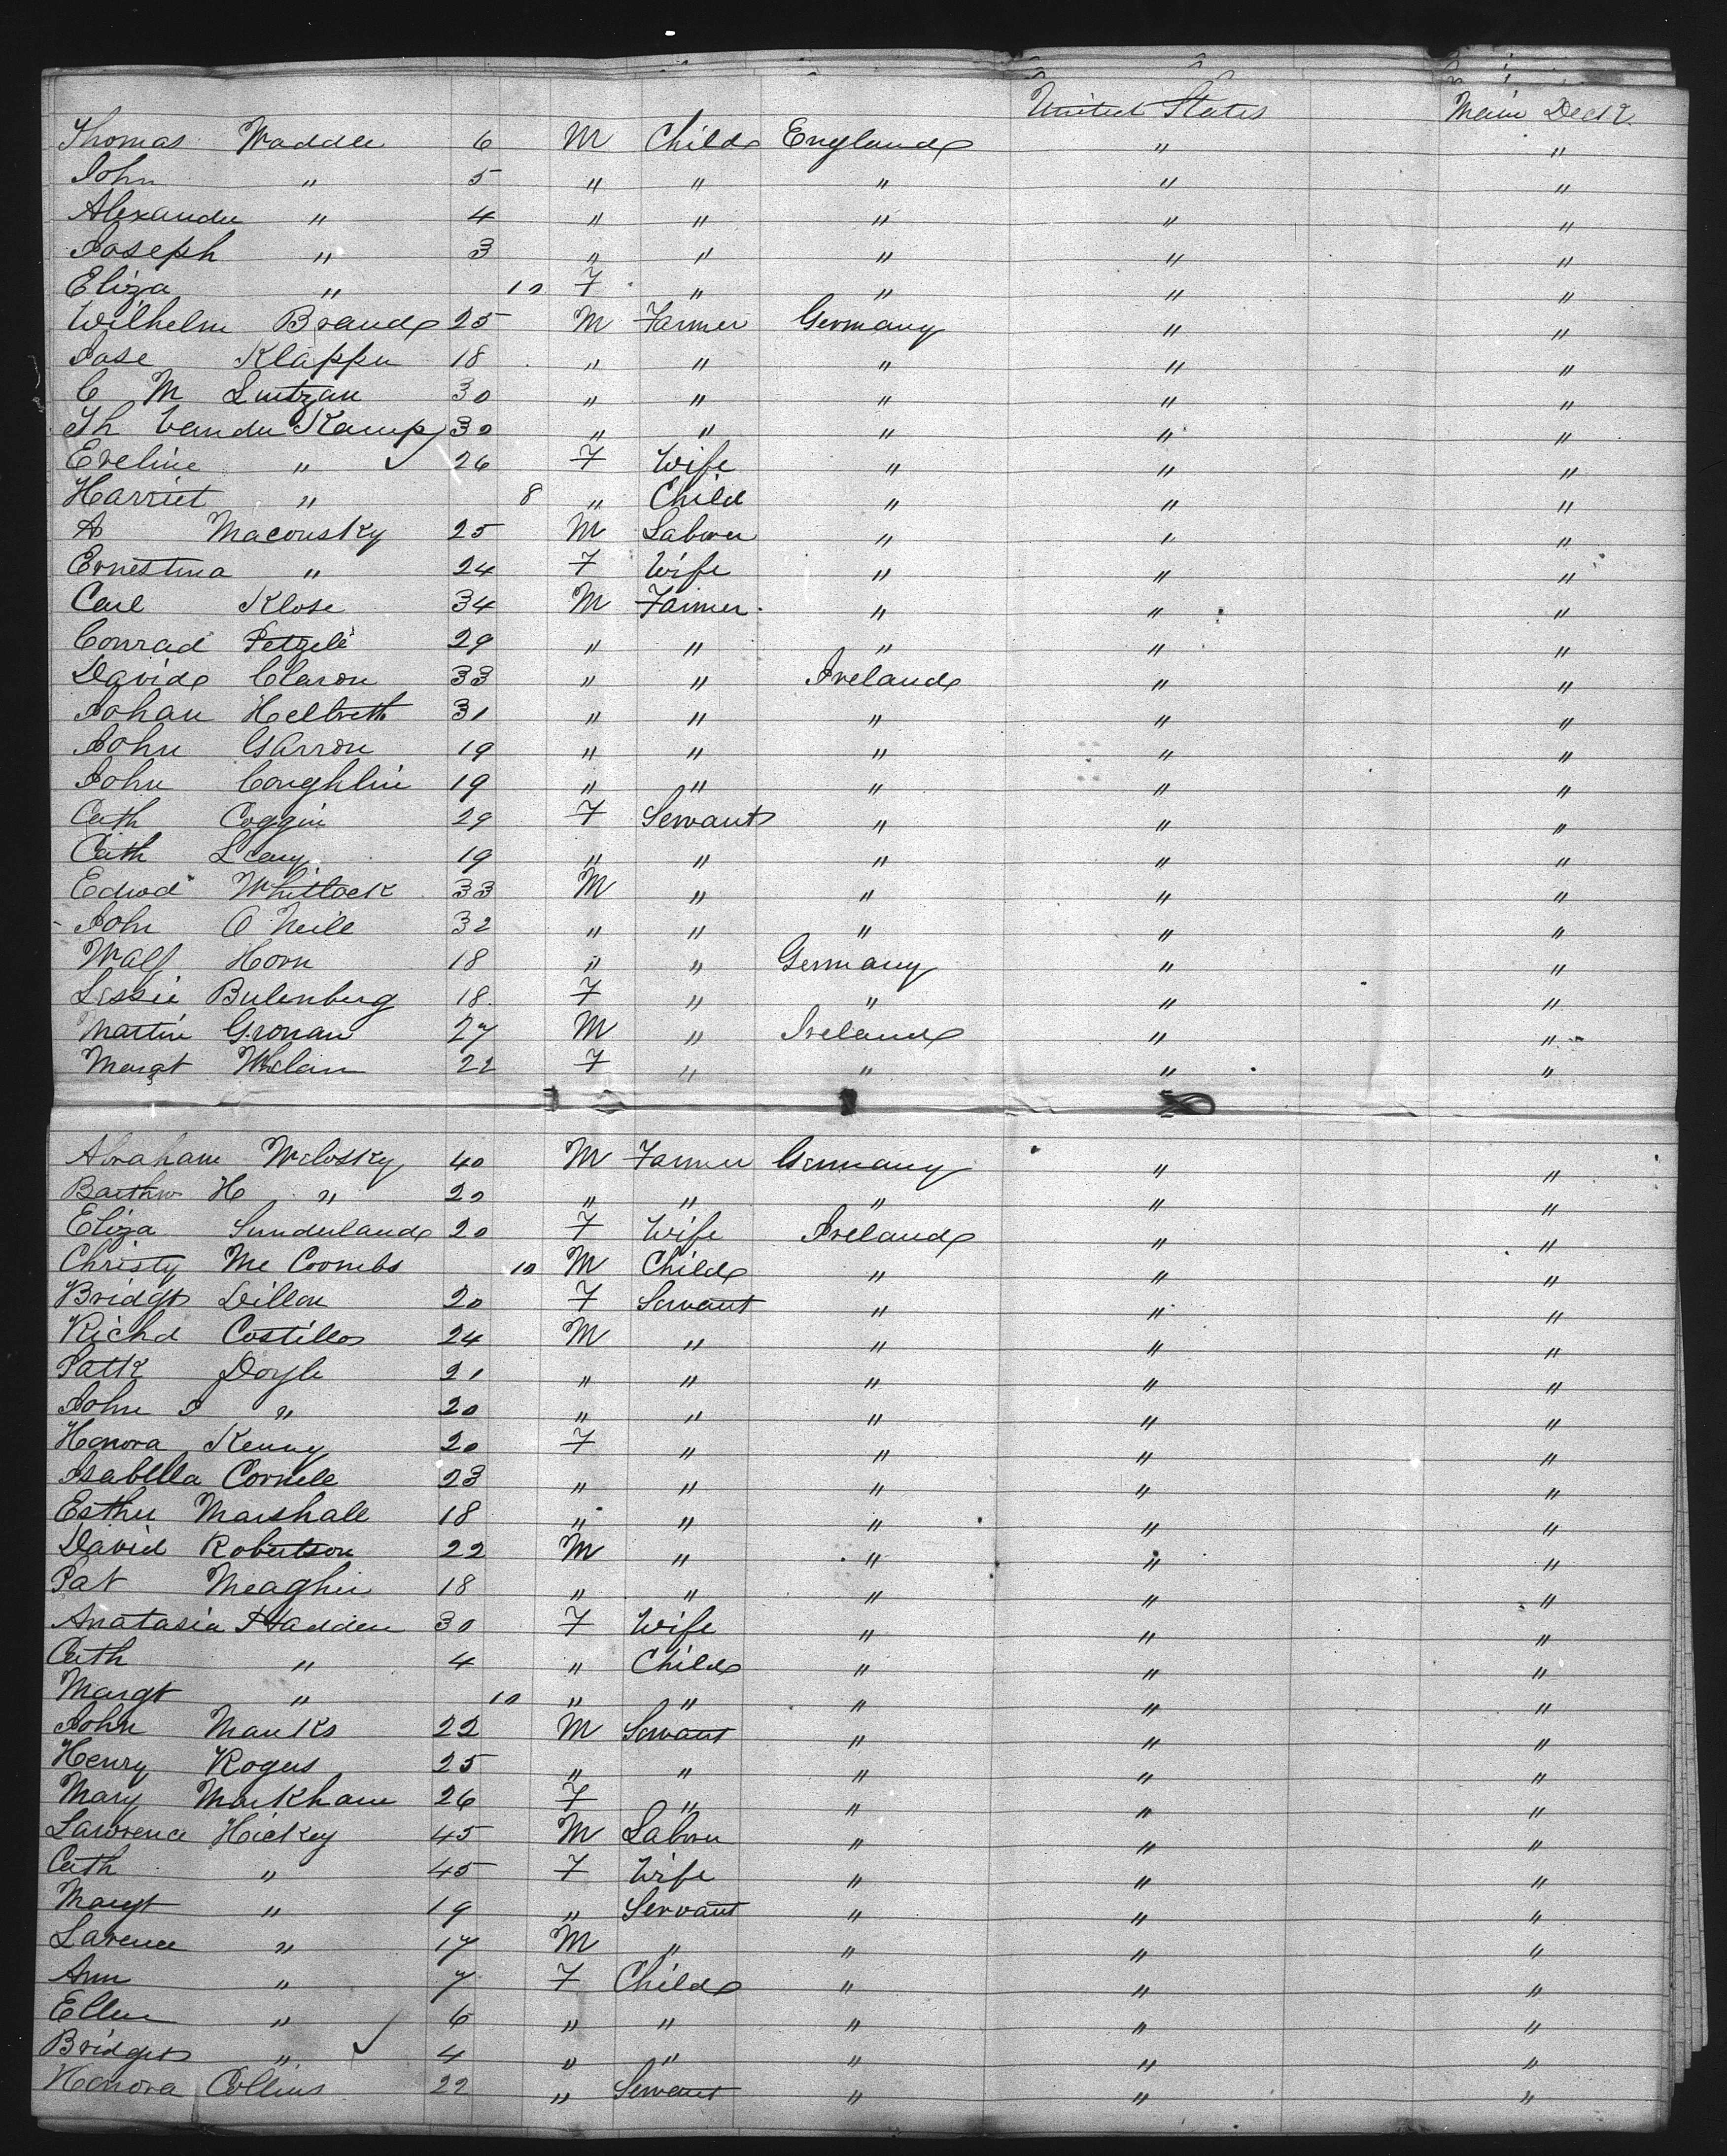 United States Main Deck
Thomas Waddle 6 M Child England " "
John " 5 " " " " "
Alexander " 4 " " " " "
Joseph " 3 " " " " "
Eliza " 10 F " " " "
Wilhelm Brand 25 M Farmer Germany " "
Jose Klapper 18 " " " " "
C M Luitzau 30 " " " " "
Th Vander Kamp 30 " " " " "
Eveline " ✓ 26 F Wife " " "
Harriet " 8 " Child " " "
A Maconsky 25 M Laborer " " "
Ernestina " 24 F Wife " " "
Carl Klose 34 M Farmer " " "
Conrad 29 " " " " "
David Claron 33 " " Ireland " "
Johan Helbreth 31 " " " " "
John Garron 19 " " " " "
John Coughlin 19 " " " " "
Cath Coggin 29 F Servant " " "
Cath Leary 19 " " " " "
Edwd Whitlock 33 M " " " "
John O Neill 32 " " " " "
Walf Horn 18 " " Germany " "
Lessie Bulenberg 18 F " " " "
Martin Gronan 27 M " Ireland " "
Margt Whelan 22 F " " " "
Abraham Welosky 40 M Farmer Germany " "
Barthw H " 20 " " " " "
Eliza Sunderland 20 F Wife Ireland " "
Christy Mc Coombs 10 M Child " " "
Bridgt Dillon 20 F Servant " " "
Richd Costillo 24 M " " " "
Patk Doyle 21 " " " " "
John J " 20 " " " " "
Honora Kenny 20 F " " " "
Isabella Cornell 23 " " " " "
Esther Marshall 18 " " " " "
David Robertson 22 M " " " "
Pat Meagher 18 " " " " "
Anatasia Hadden 30 F Wife " " "
Cath " 4 " Child " " "
Margt " 10 " " " " "
John Manks 22 M Servant " " "
Henry Rogers 25 " " " " "
Mary Markham 26 F " " " "
Lawrence Hickey 45 M Laborer " " "
Cath " 45 F Wife " " "
Margt " 19 " Servant " " "
Larence " 17 M " " " "
Ann " 7 F Child " " "
Ellen " 6 " " " " "
Bridget " ✓ 4 " " " " "
Honora Collins 22 " Servant " " "